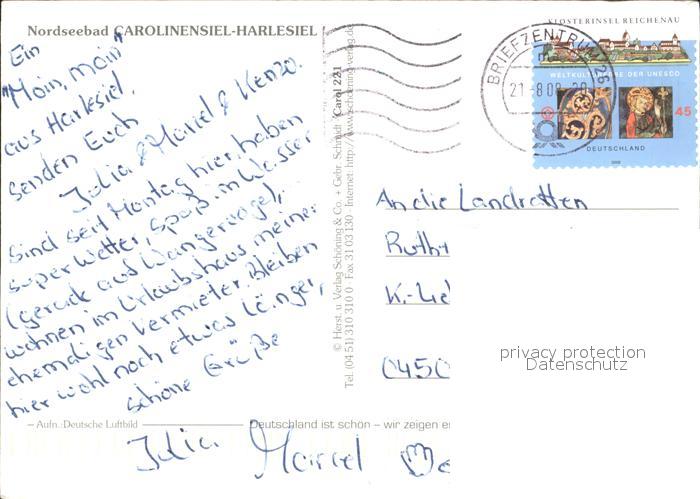 Nordseebad CAROLINENSIEL-HARLESIEL
Ein
"Moin, moin"
aus Harlesiel
senden Euch
Julia & Marcel & Kenzo.
Sind seit Montag hier, haben
super Wetter, Spaß im Wasser
(gerade auf Wangerooge),
wohnen im Urlaubshaus meiner
ehemaligen Vermieter. Bleiben
hier wohl noch etwas länger,
schöne Grüße
Julia Marcel
– Aufn.: Deutsche Luftbild
Deutschland ist schön – wir zeigen es
© Herst. u. Verlag Schöning & Co. + Gebr. Schmidt · Carol 221
Tel. (04 51) 310 310 0 · Fax 31 03 130 · Internet: http://www.schoening-verlag.de
BRIEFZENTRUM 26
21.-8.08
KLOSTERINSEL REICHENAU
WELTKULTURERBE DER UNESCO
45
DEUTSCHLAND
2008
An die Landratten
Ruth
K.-Lie
0450
privacy protection
Datenschutz